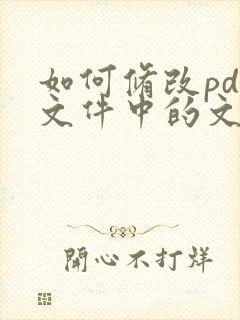 如何修改pd
文件中的文
開心不打烊